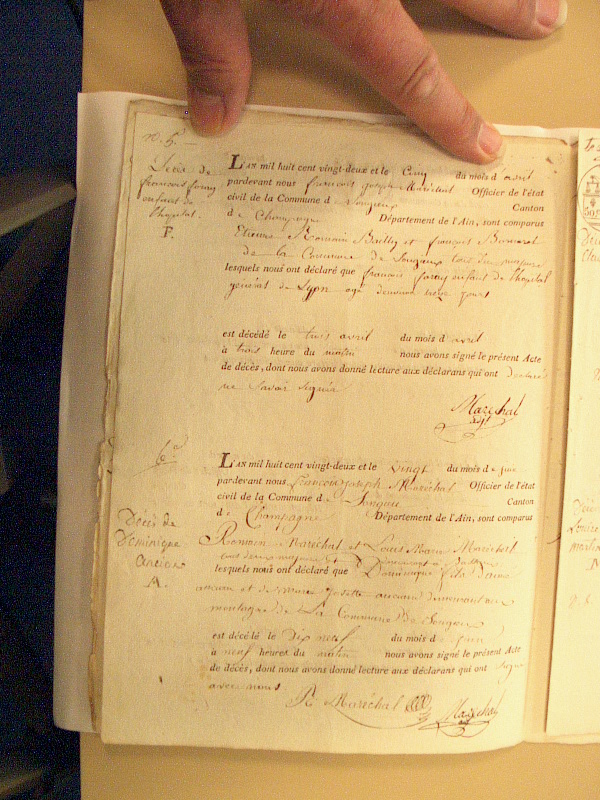 n. 5.
Décès de
françois foray
enfant de
l'hopital.
F.
L'AN mil huit cent vingt-deux et le Cinq du mois d avril
pardevant nous françois joseph Maréchal Officier de l'état
civil de la Commune d Songieu Canton
de Champagne Département de l'Ain, sont comparus
Etienne Romain Bailly et françois
de la Commune de Songieux tous deux majeurs
lesquels nous ont déclaré que françois foray enfant de l'hopital
général de Lyon agé denviron jours
est décédé le trois avril du mois d avril
à trois heure du matin nous avons signé le présent Acte
de décès, dont nous avons donné lecture aux déclarans qui ont déclaré
ne Savoir Signer
Maréchal
adjt
6e
Décès de
Dominique
ancian
A.
L'AN mil huit cent vingt-deux et le vingt du mois de juin
pardevant nous françois Joseph Maréchal Officier de l'état
civil de la Commune d Songieu Canton
de Champagne Département de l'Ain, sont comparus
Romain Maréchal et Louis Marie Maréchal
tous deux majeurs
lesquels nous ont déclaré que Dominique fils d'aimé
ancian et de josette ancian demeurant en
montagne de La Commune De Songieu
est décédé le Dix neuf du mois d juin
à neuf heures du matin nous avons signé le présent Acte
de décès, dont nous avons donné lecture aux déclarans qui ont signé
avec nous
R Maréchal Maréchal
adjt